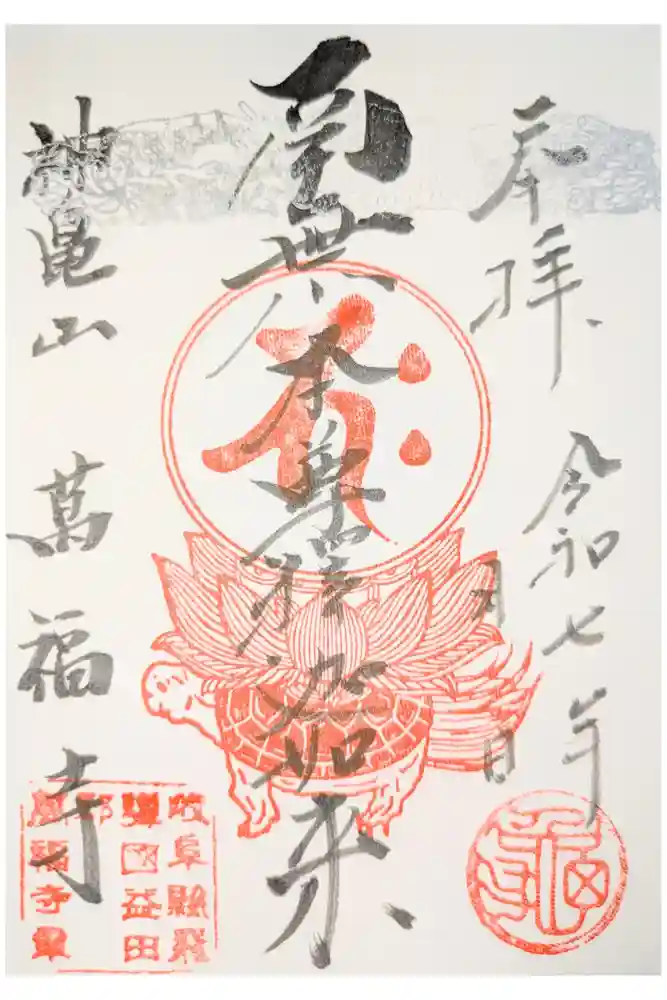 奉拝
令和七年
月 日
南無本尊釋迦如来
神亀山 萬福寺
岐阜縣飛
驒國益田
郡
萬福寺章